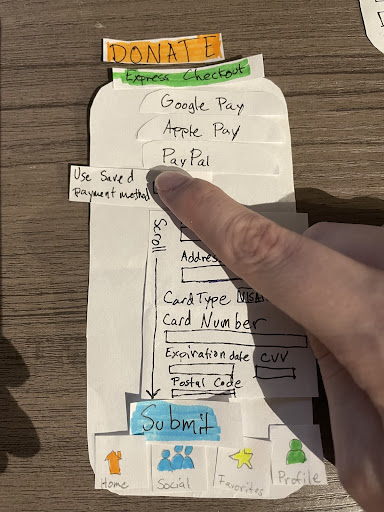 DONATE
Express Checkout
Google Pay
Apple Pay
PayPal
Use Saved
payment method
Scroll
Address
Card Type VISA
Card Number
Expiration date CVV
Postal Code
Submit
Home Social Favorites Profile